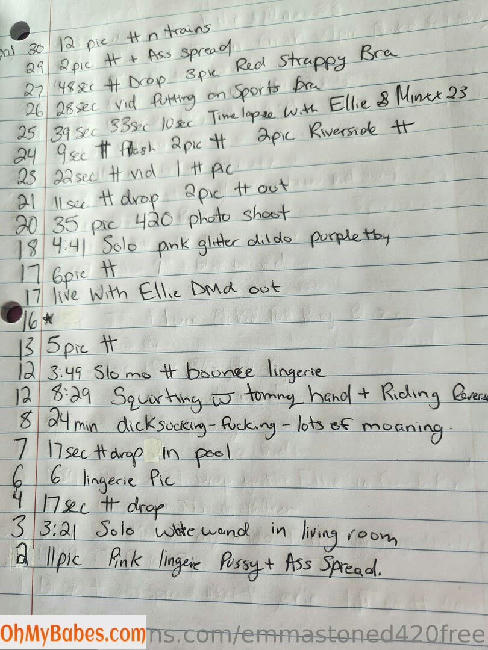 30 12 pic tt n trains
29 2pic tt + Ass spread
27 48sec tt Drop 3pic Red Strappy Bra
26 28sec vid Putting on Sports Bra
25 39sec 33sec 10sec Time lapse with Ellie & Minxx 23
24 9sec tt flash 2pic tt 2pic Riverside tt
23 22sec tt vid 1 tt pic
21 11sec tt drop 2pic tt out
20 35 pic 420 photo shoot
18 4:41 Solo pink glitter dildo purple toy
17 6pic tt
17 live With Ellie DMd out
16*
13 5pic tt
12 3:49 Slo mo tt bounce lingerie
12 8:29 Squirting w tommy hand + Riding
8 24min dicksucking-fucking-lots of moaning.
7 17sec tt drop in pool
6 6 lingerie Pic
4 17sec tt drop
3 3:21 Solo wand in living room
2 11pic Pink lingerie Pussy + Ass Spread.
OhMyBabes.com ns.com/emmastoned420free